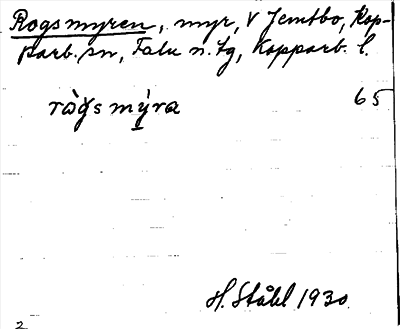 Rogsmyren, myr, V Jemtbo, Kop-
parb. sn, Falu n. tg, Kopparb. l.
ròg̀s mýra 65
H. Ståhl 1930
2